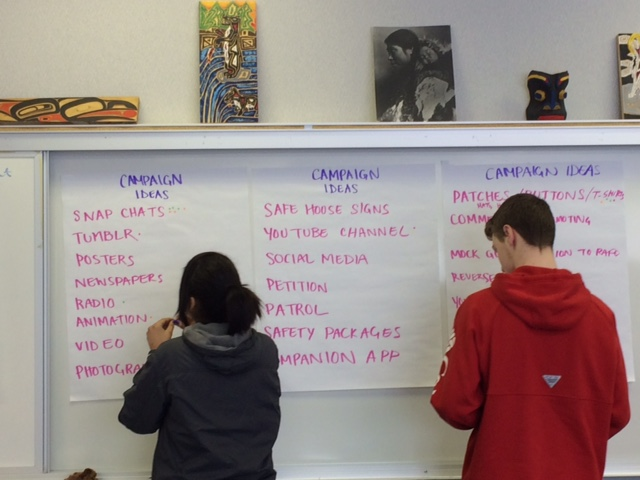 CAMPAIGN
IDEAS
SNAP CHATS
TUMBLR
POSTERS
NEWSPAPERS
RADIO
ANIMATION
VIDEO
CAMPAIGN
IDEAS
SAFE HOUSE SIGNS
YOUTUBE CHANNEL
SOCIAL MEDIA
PETITION
PATROL
SAFETY PACKAGES
APP
CAMPAIGN IDEAS
PATCHES/BUTTONS/T-SHIRTS
MOCK